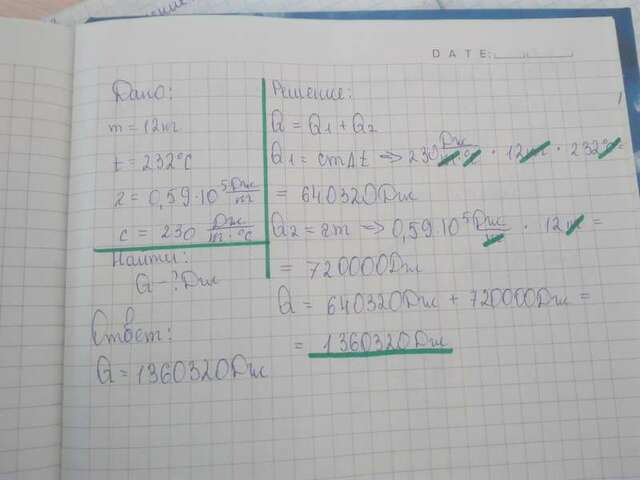 DATE:
Дано:
m = 12кг
t = 232°C
λ = 0,59·10⁵ Дж/кг
c = 230 Дж/кг·°C
Найти:
Q - ? Дж
Ответ:
Q = 1360320Дж
Решение:
Q = Q₁ + Q₂
Q₁ = cmΔt => 230 Дж/кг·°C · 12кг · 232°C =
= 640320Дж
Q₂ = λm => 0,59·10⁵ Дж/кг · 12кг =
= 720000Дж
Q = 640320Дж + 720000Дж =
= 1360320Дж